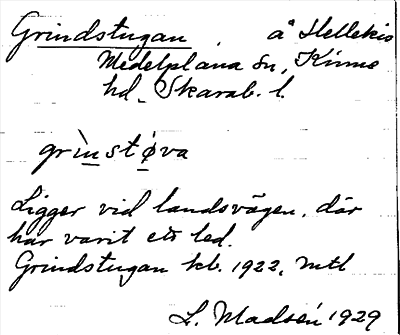 Grindstugan å Hellekis
Medelplana sn, Kinne
hd. Skarab. l.
grìnstøva
Ligger vid landsvägen, där
har varit ett led.
Grindstugan kb. 1922, mtl
L. Madsén 1929